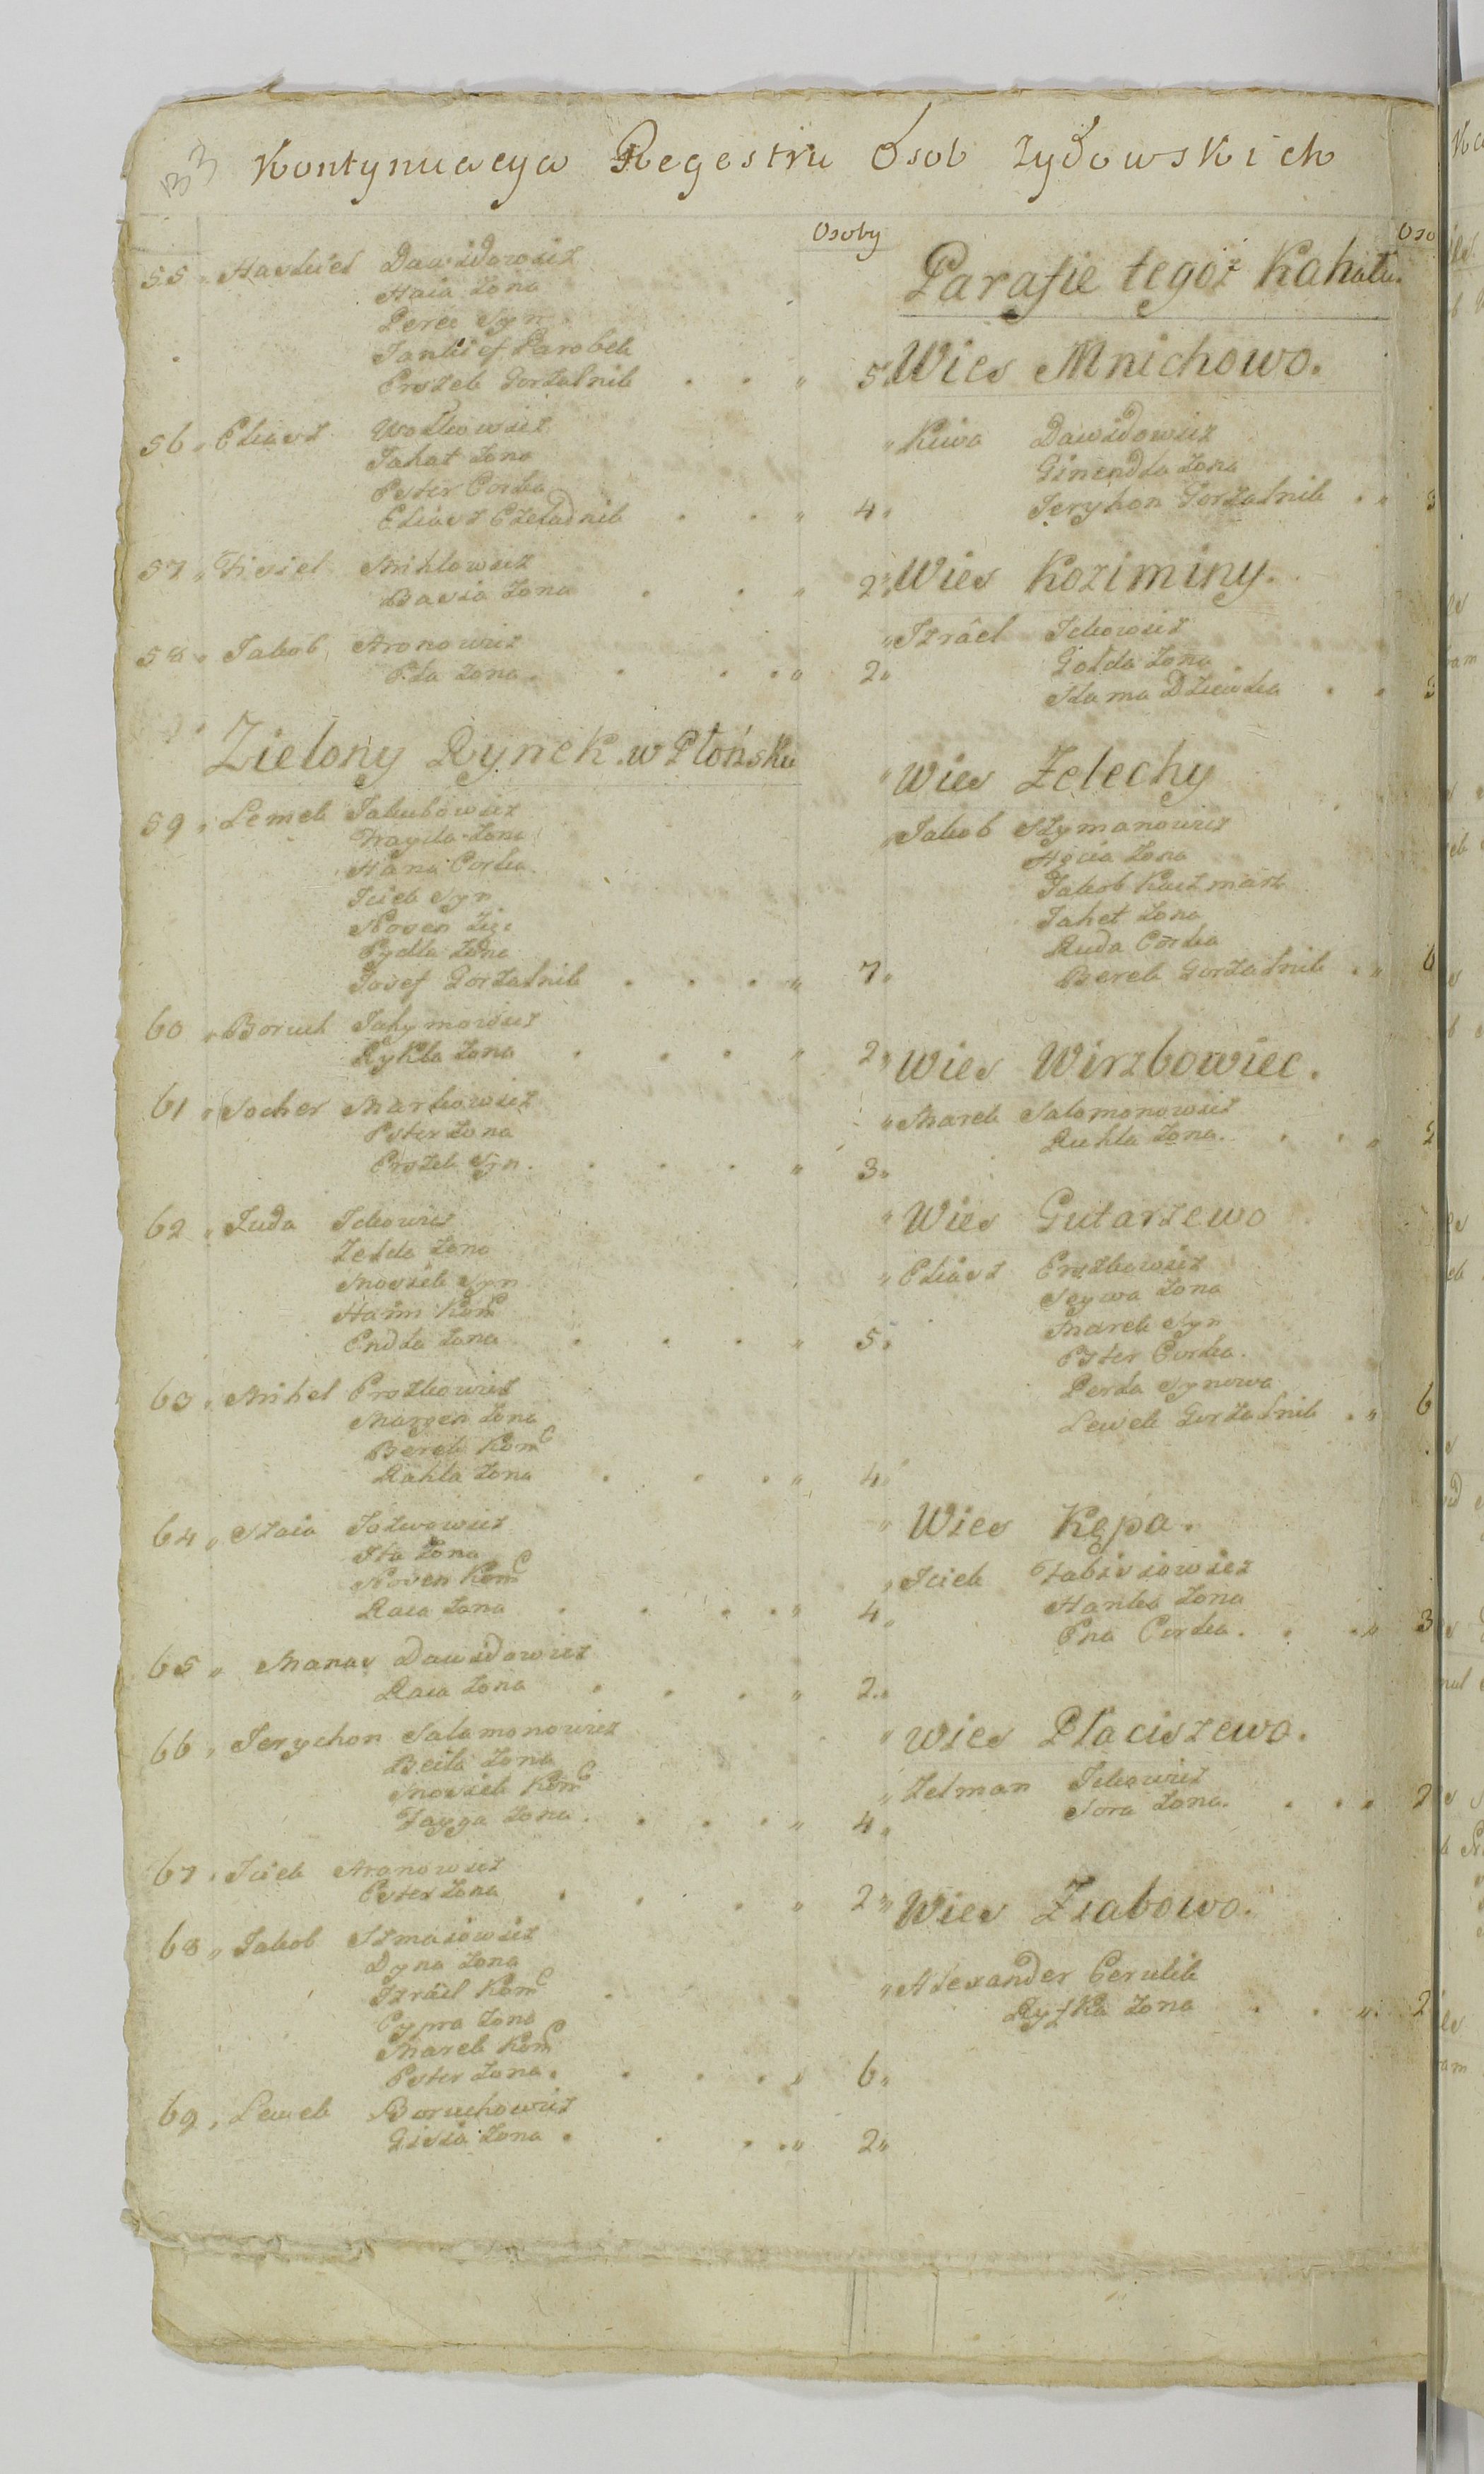 33
Kontynuacya Regestru Osob Zydowskich
Osoby
55 Dawidowicz
Haia Zona
Perec Syn
Parobek
Erszek Gorzalnik 5
56 Eliasz Wolkowicz
Jahat Zona
Ester Corka
Eliasz Czeladnik 4
57 Fisiel Mihlowicz
Basia Zona 2
58 Jakob Aronowicz
Zona 2
Zielony Rynek w Płońsku
59 Lemek Jakubowicz
Frayda Zona
Hana Corka
Icick Syn
Noven Zię:
Pydla Zona
Josef Gorzalnik 7
60 Boruch Jahymowicz
Rykla Zona 2
61 Socher Markowicz
Ester Zona
Erszek Syn 3
62 Juda Ickowicz
Zelda Zona
Mosiek Syn
Haim Komc
Endla Zona 5
63 Mihel Erszkowicz
Maryen Zona
Berek Komc
Rahla Zona 4
64 Szaia
Ita Zona
Noven Komc
Raia Zona 4
65 Manas Dawidowicz
Raia Zona 2
66 Jerychon Salamonowicz
Beila Zona
Mosiek Komc
Fayga Zona 4
67 Iciek Aronowicz
Ester Zona 2
68 Jakob Szmaiowicz
Dyna Zona
Izrael Komc
Cypra Zona
Marek Komc
Ester Zona 6
69 Lewek Boruchowicz
Gisia Zona 2
Oso
Parafie tegoż Kahału.
Wies Mnichowo.
Kiwa Dawidowicz
Ginendla Zona
Jeryhon Gorzalnik 3
Wies Koziminy.
Izrael Ickowicz
Golda Zona
Dziewka 3
Wies Zelechy
Jakob Szymanowicz
Zona
Jakob Kaczmarz
Jahet Zona
Ruda Corka
Berek Gorzalnik 6
Wies Wirzbowiec.
Marek Salomonowicz
Ruhla Zona 2
Wies Gutarzewo
Eliasz Erszkowicz
Seywa Zona
Marek Syn
Ester Corka.
Perla Synowa
Lewek Gorzalnik 6
Wies Kępa.
Iciek Szabsiowicz
Hanka Zona
Ena Corka 3
Wies Płaciszewo.
Zelman Ickowicz
Sora Zona 2
Wies Ziabowo.
Alexander Cerulik
Ryfka Zona 2